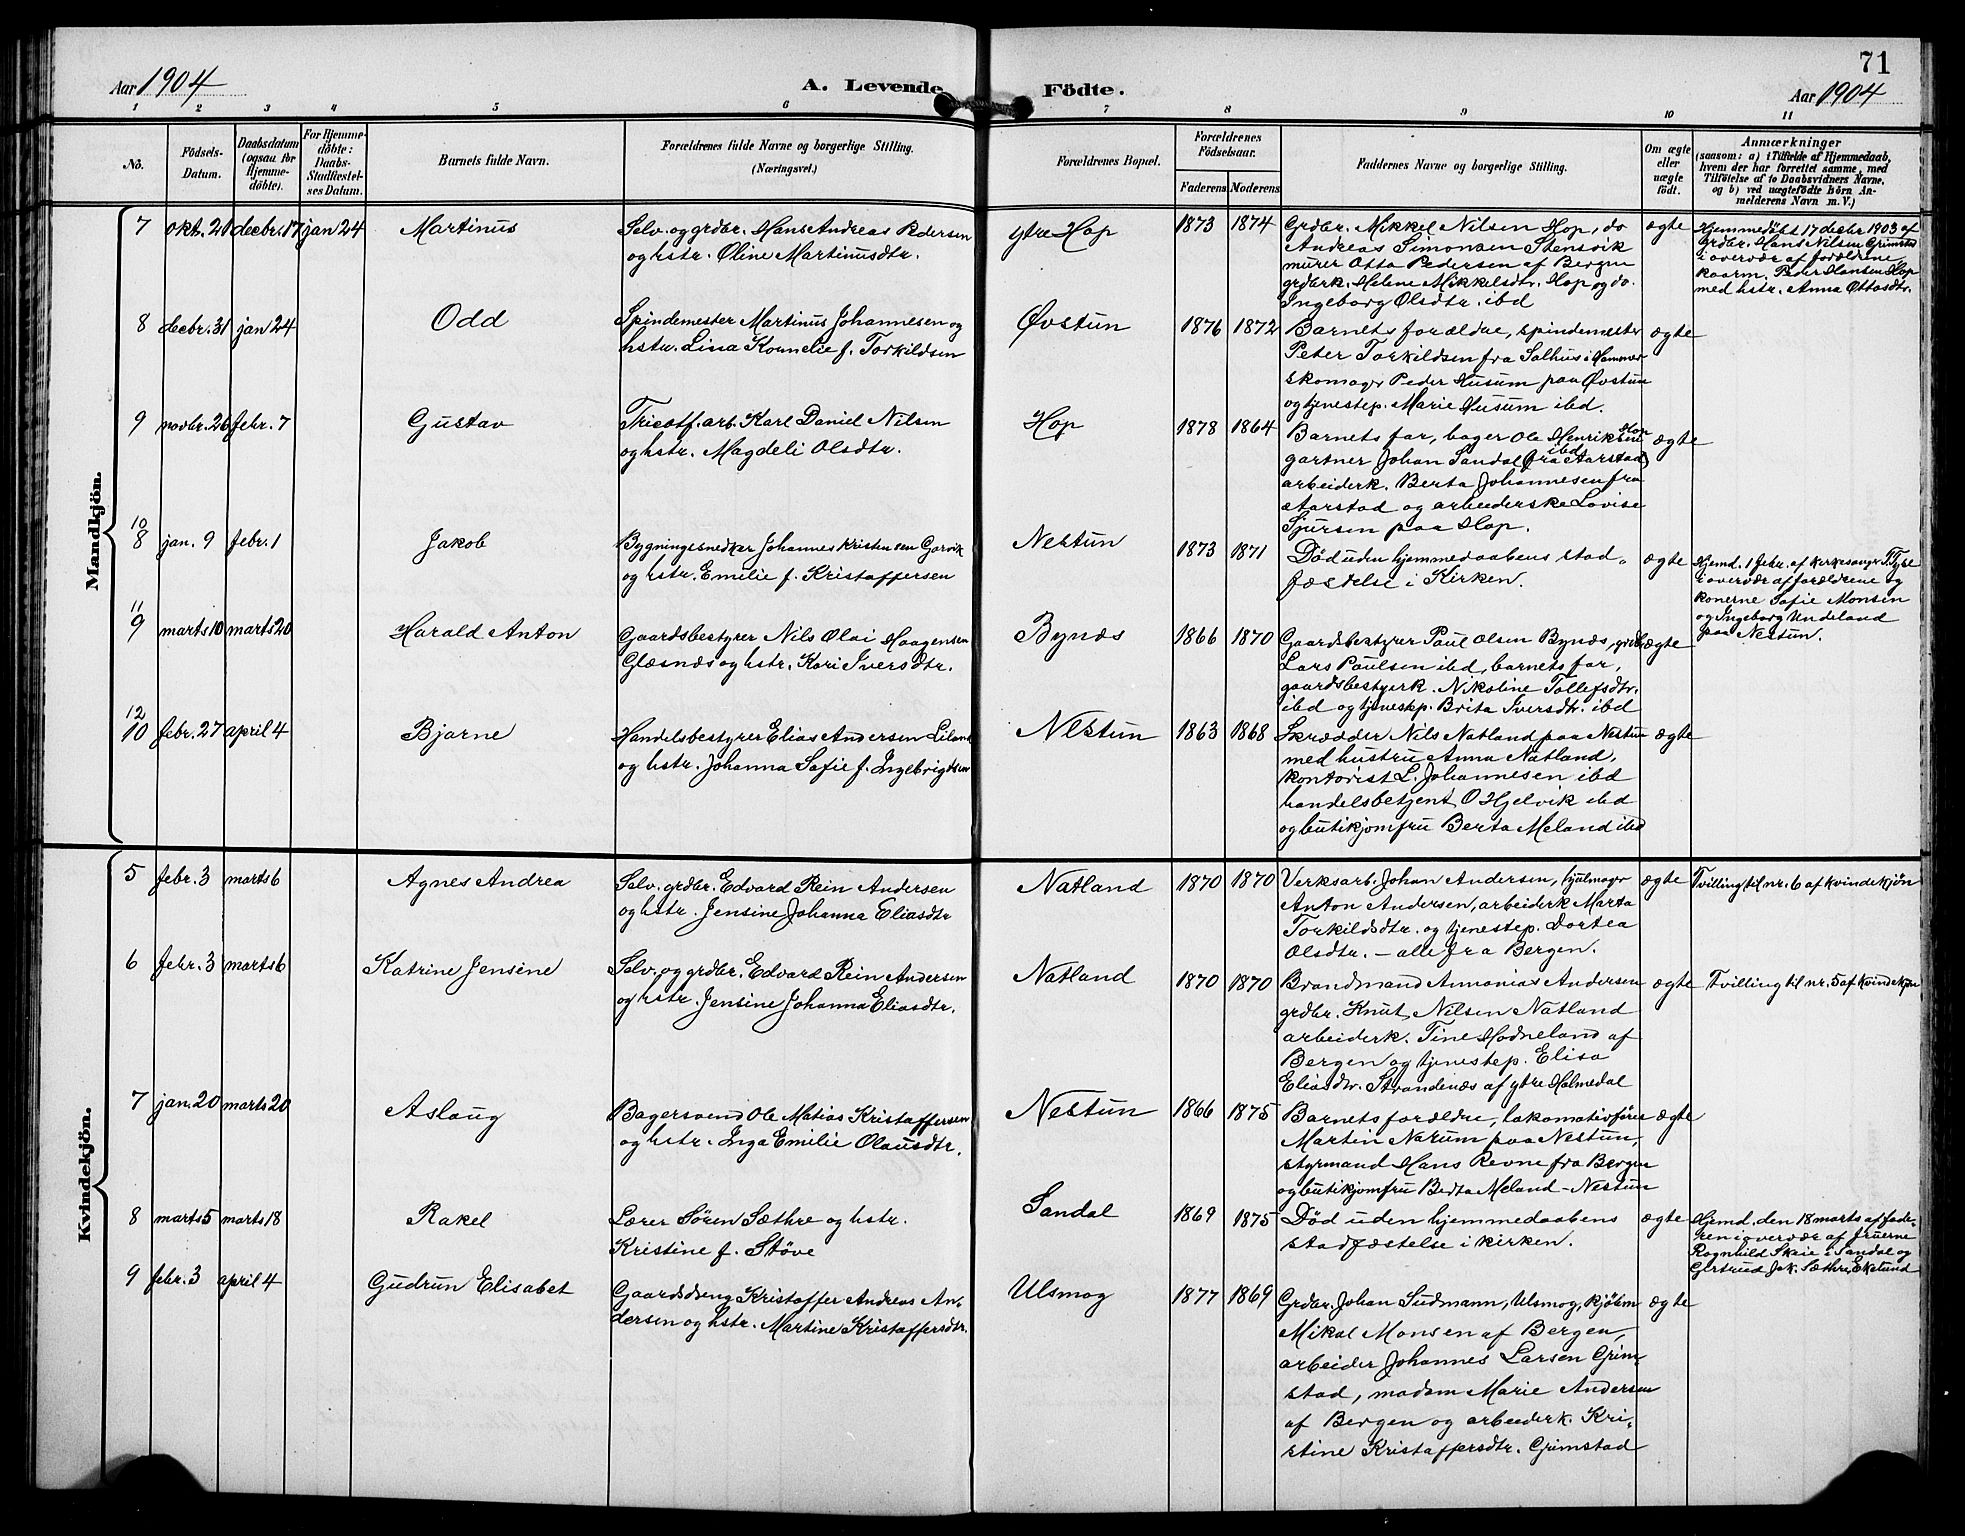 Aar 1904
A. Levende Födte.
71
Aar 1904
1 2 3 4 5 6 7 8 9 10 11
Nô.
Födsels-
Datum.
Daabsdatum
(ogsaa for
Hjemme-
döbte).
For Hjemme-
döbte:
Daabs-
Stadfæstel-
ses Datum.
Barnets fulde Navn.
Forældrenes fulde Navne og borgerlige Stilling.
(Næringsvei.)
Forældrenes Bopæl.
Forældrenes
Födselsaar.
Faderens Moderens
Faddernes Navne og borgerlige Stilling.
Om ægte
eller
uægte
födt.
Anmærkninger
(saasom: a) i Tilfælde af Hjemmedaab,
hvem der har forrettet samme, med
Tilföielse af to Daabsvidners Navne,
og b) ved uægtefödte Börn An-
melderens Navn m. V.)
Mandkjön.
7 okt. 21 decbr. 17 jan 24 Martinus
Selv. og grdbr. Hans Andreas Pedersen
og hstr. Oline Martinusdtr.
ytre Hop 1873 1874
Grdbr. Mikkel Nilsen Hop, do
Andreas Simonsen Stensvik
murer Otto Pedersen af Bergen
grdbrk. Helene Mikkelsdtr. Hop og do.
Ingeborg Olsdtr. ibd
ægte
Hjemmedöbt 17 decbr 1903 af
Grdbr. Hans Nilsen Grimstad
i overvær af forældrene
kaarm. Peder Hansen Hop
med hstr. Anna Ottosdtr.
8 decbr. 31 jan 24 Odd
Spindemester Martinus Johannesen og
hstr. Lina Kornelie f. Torkildsen
Øvstun 1876 1872
Barnets forældre, spindemester
Peter Torkildsen fra Salhus i Hammer
skomagr Peder Husum paa Øvstun
og tjenestep. Marie Husum ibd.
ægte
9 novbr. 26 febr. 7 Gustav
Tricotf. arb. Karl Daniel Nilsen
og hstr. Magdeli Olsdtr.
Hop 1878 1864
Barnets far, bager Ole Henriksen Hop
gartner Johan Sandal ibd (fra Aarstad)
arbeiderk. Berta Johannesen fra
Aarstad og arbeiderske Lovise
Sjursen paa Hop.
ægte
10
8 jan. 9 febr. 1 Jakob
Bygningssnedker Johannes Kristensen Garvik
og hstr. Emilie f. Kristoffersen
Nestun 1873 1871
Död uden hjemmedaabens stad-
fæstelse i Kirken.
ægte
Hjemd. 1 febr. af kirkesanger T. Tyse
i overvær af forældrene og
konerne Sofie Monsen
og Ingeborg Undeland
paa Nestun.
11
9 marts 10 marts 20 Harald Anton
Gaardsbestyrer Nils Olai Haagensen
Glæsnæs og hstr. Kari Iversdtr.
Bynæs 1866 1870
Gaardsbestyrer Paul Olsen Bynæs, grdbr.
Lars Paulsen ibd, barnets far,
gaardsbestyerk. Nikoline Tollefsdtr.
ibd og tjenestep. Brita Iversdtr. ibd
ægte
12
10 febr. 27 april 4 Bjarne
Handelsbestyrer Elias Andersen Liland
og hstr. Johanna Sofie f. Ingebrigtsen
Nestun 1863 1868
Skrædder Nils Natland paa Nestun
med hustru Anna Natland,
kontorist L. Johannesen ibd
handelsbetjent O Hjelvik ibd
og butikjomfru Berta Meland ibd
ægte
Kvindekjön.
5 febr. 3 marts 6 Agnes Andrea
Selv. grdbr. Edvard Rein Andersen
og hstr. Jensine Johanna Eliasdtr
Natland 1870 1870
Verksarb. Johan Andersen, hjulmagr
Anton Andersen, arbeiderk Marta
Torkildsdtr. og tjenestep. Dortea
Olsdtr. – alle fra Bergen.
ægte
Tvilling til nr. 6 af kvindekjön
6 febr. 3 marts 6 Katrine Jensine
Selv. og grdbr. Edvard Rein Andersen
og hstr. Jensine Johanna Eliasdtr.
Natland 1870 1870
Brandmand Annanias Andersen
grdbr. Knut Nilsen Natland
arbeiderk. Tine Hodneland af
Bergen og tjenestep. Elisa
Eliasdtr. Strandenæs af ytre Holmedal
ægte
Tvilling til nr. 5 af kvindekjön
7 jan. 20 marts 20 Aslaug
Bagersvend Ole Matias Kristoffersen
og hstr. Inga Emilie Olausdtr.
Nestun 1866 1875
Barnets forældre, lokomotivförer
Martin Narum paa Nestun,
styrmand Hans Revne fra Bergen
og butikjomfru Berta Meland – Nestun
ægte
8 marts 5 marts 18 Rakel
Lærer Sören Sæthre og hstr.
Kristine f. Stöve
Sandal 1869 1875
Död uden hjemmedaabens
stadfæstelse i kirken.
ægte
Hjemd. den 18 marts af fade-
ren i overvær af fruerne
Ragnhild Skaie i Sandal og
Gertrud Jak. Sæthre, Ekelund
9 febr. 3 april 4 Gudrun Elisabet
Gaardsdreng Kristoffer Andreas An-
dersen og hstr. Martine Kristoffersdtr.
Ulsmog 1877 1869
Grdbr. Johan Sudmann, Ulsmog, kjöbm
Mikal Monsen af Bergen,
arbeider Johannes Larsen Grim-
stad, madam Marie Andersen
af Bergen og arbeiderk. Kri-
stine Kristoffersdtr. Grimstad
ægte